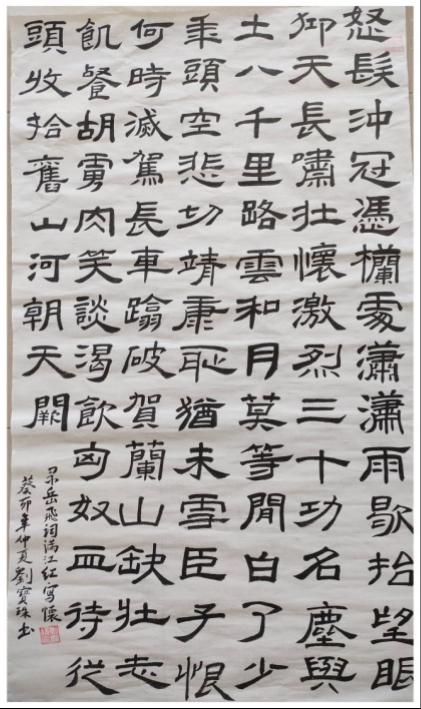 怒髮沖冠憑欄處瀟瀟雨歇抬望眼
仰天長嘯壯懷激烈三十功名塵與
土八千里路雲和月莫等閒白了少
秊頭空悲切靖康恥猶未雪臣子恨
何時滅駕長車蹹破賀蘭山缺壯志
飢餐胡虜肉笑談渴飲匈奴血待從
頭收拾舊山河朝天闕
录岳飛词满江紅寫懷
癸卯年仲夏劉寶珠书